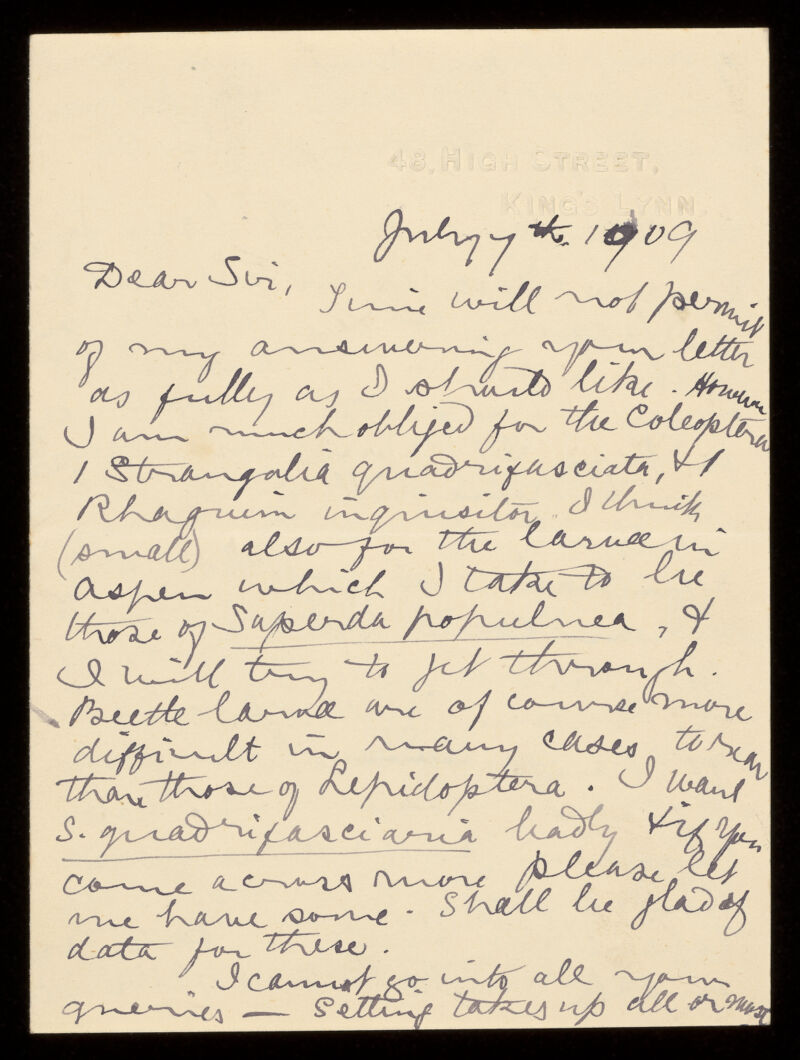 48, HIGH STREET,
KING'S LYNN.
July 7th. 1909
Dear Sir,
Time will not permit
of my answering your letter
as fully as I should like. However
I am much obliged for the Coleoptera
1 Strangalia quadrifasciata, & 1
Rhagium inquisitor I think
(small) also for the larvæ in
aspen which I take to be
those of Saperda populnea, &
I will try to get through.
Beetle larvæ are of course more
difficult in many cases to rear
than those of Lepidoptera. I want
S. quadrifasciaria badly & if you
come across more please let
me have some. Shall be glad of
data for these.
I cannot go into all your
queries — Setting takes up all or most